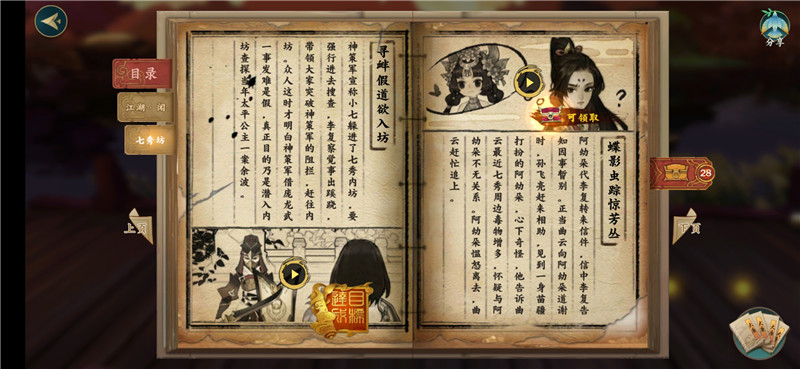 分享
目录
江湖
闻
七秀坊
上页
下页
28
寻衅假道欲入坊
神策军宣称小七躲进了七秀内坊，要
强行进去搜查，李复察觉事出蹊跷，
带领大家突破神策军的阻拦，赶往内
坊。众人这时才明白神策军借庞龙武
一事发难是假，真正目的乃是潜入内
坊查探当年太平公主一案余波。
目标
达成
可领取
?
蝶影虫踪惊芳丛
阿幼朵代李复转来信件，信中李复告
知因事暂别。正当曲云向阿幼朵道谢
时，孙飞亮赶来相助，见到一身苗疆
打扮的阿幼朵，心下奇怪，他告诉曲
云最近七秀周边毒物增多，怀疑与阿
幼朵不无关系。阿幼朵愠怒离去，曲
云赶忙追上。